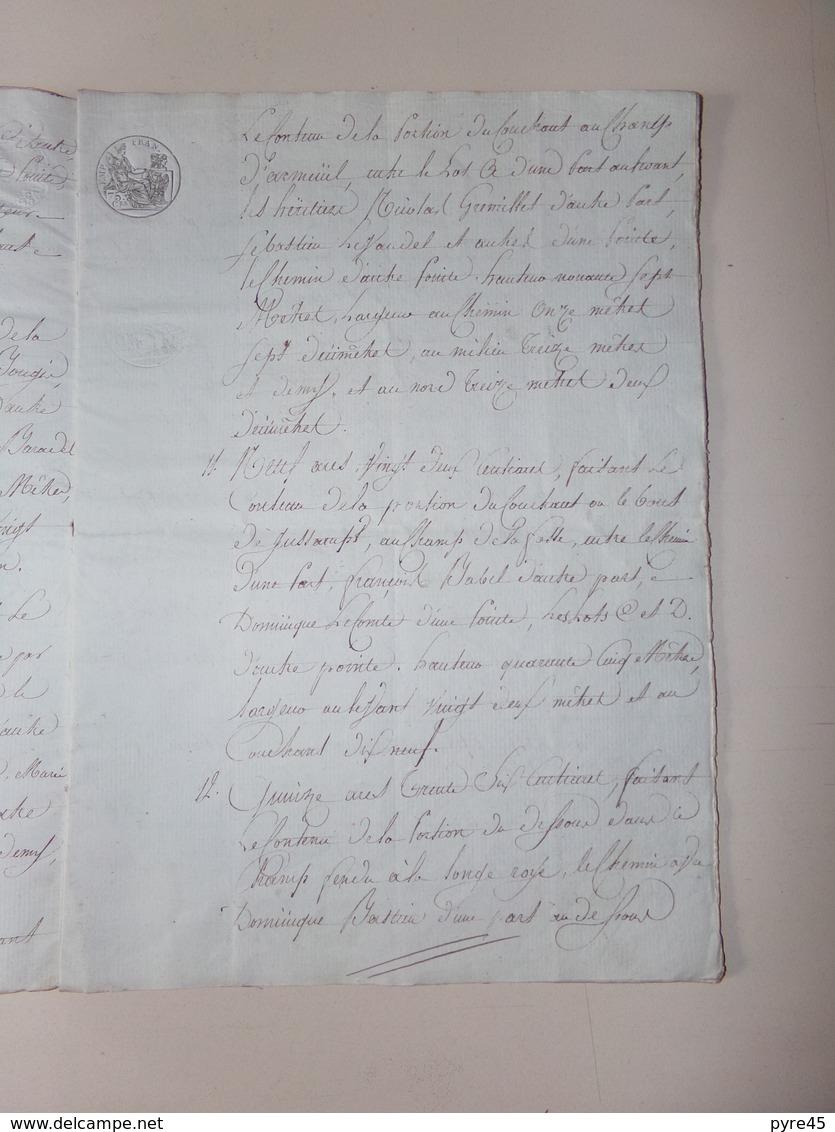 d'autre
pointe,
teur
de la
Bougie,
d'autre
Baradel
Mètres,
vingt
n.
t Le
e par
e le
d'autre
Marie
demy,
ant
IMP. FRAN.
Le Contenu de la Portion du Couchant au Champ
D'armeüil, entre le Lot C d'une Part au levant,
les héritiers Nicolas Grenillet d'autre Part,
Sebastien LeVaudel et autres d'une Pointe,
le Chemin d'autre Pointe. hauteur nonante Sept
Mètres, Largeur au Chemin Onze mètres
Sept décimètres, au milieu treize mètres
et demy, et au nord treize mètres deux
Décimètres.
11. Neuf ares Vingt deux Centiares, faisant Le
Contenu de la portion du Couchant ou le bout
de Jussarupt, au Champ de la fosse, entre le Chemin
d'une Part, françois Babel d'autre part,
Dominique LeComte d'une Pointe, Les Lots C et D.
d'autre pointe. hauteur quarante Cinq Mètres,
Largeur au levant Vingt deux mètres et au
Couchant dix neuf.
12. Quinze ares trente Six Centiares, faisant
Le Contenu de la Portion du dessous dans le
Champ fendu à la longe roye, le Chemin
Dominique Bastien d'une part au dessous
Delcampe.net
pyre45